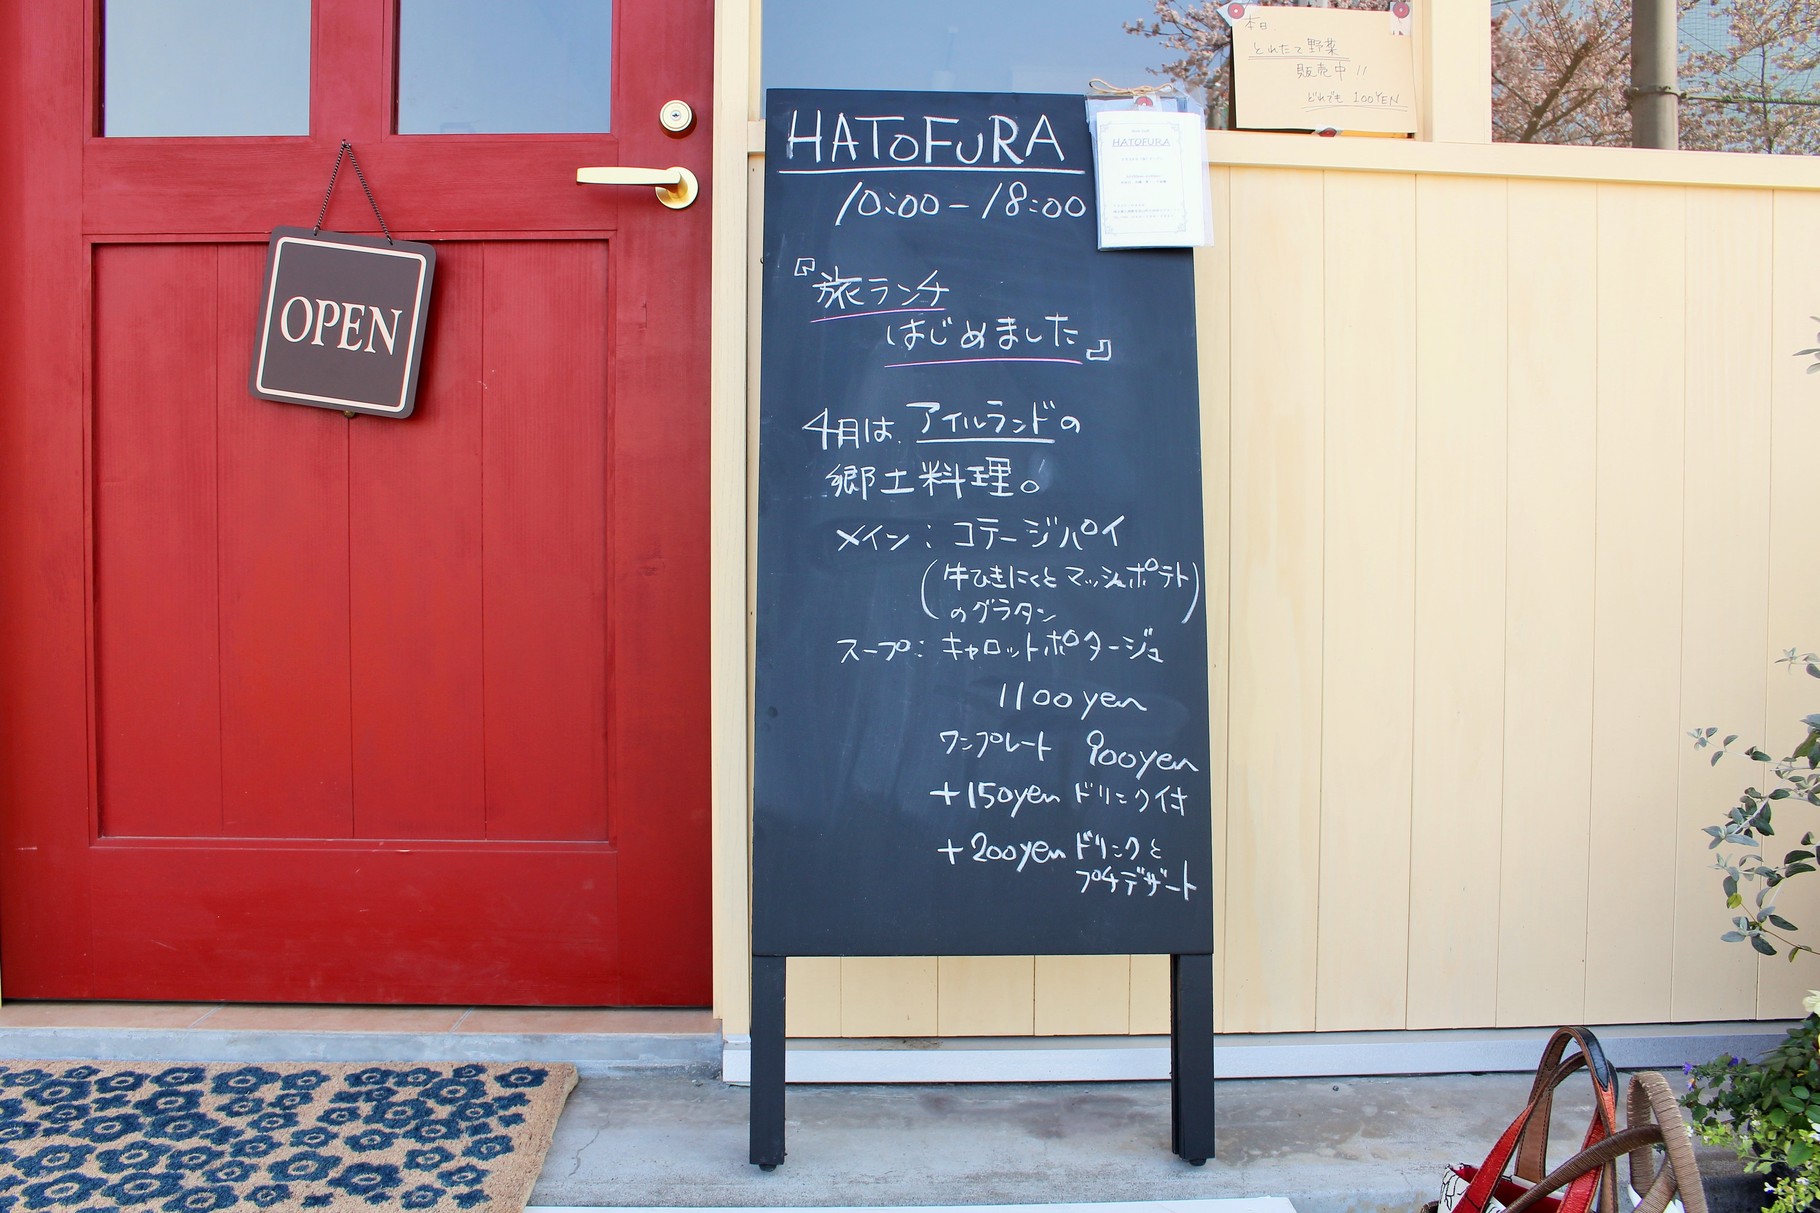 OPEN
HATOFURA
10:00-18:00
『旅ランチ
はじめました』
4月は、アイルランドの
郷土料理。
メイン：コテージパイ
(牛ひきにくとマッシュポテト)
のグラタン
スープ：キャロットポタージュ
1100yen
ワンプレート 900yen
+150yen ドリンク付
+200yen ドリンクと
プチデザート
HATOFURA
本日
とれたて野菜
販売中!!
どれでも 100YEN